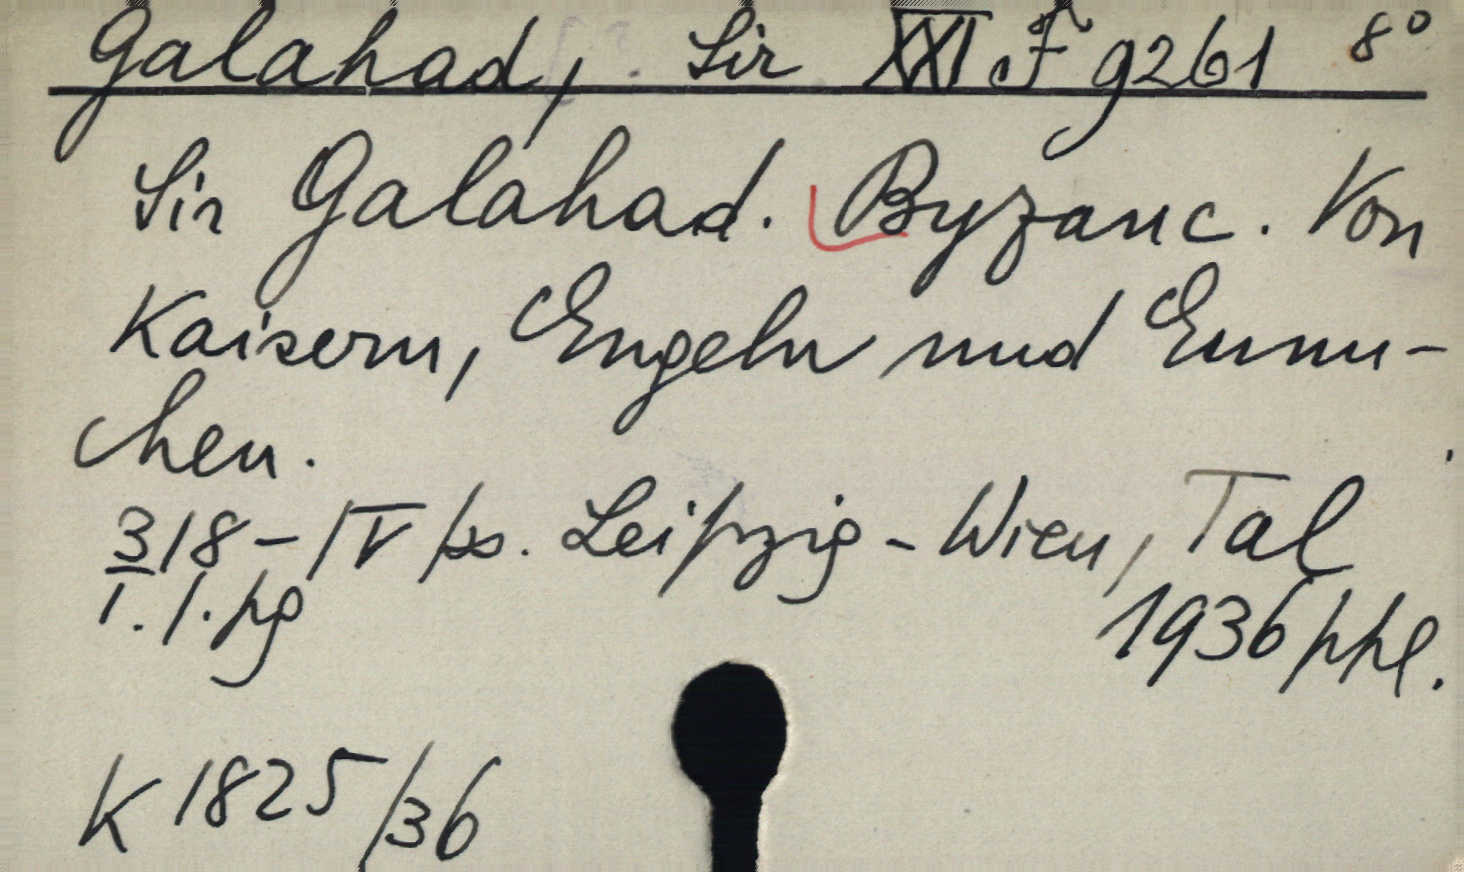 Galahad, Sir XXI F 9261 8°
Sir Galahad. Byzanc. Von
Kaisern, Engeln und Eunu-
chen.
318 - IV ss. Leipzig - Wien, Tal
1. l. pg 1936 ppl.
K 1825/36